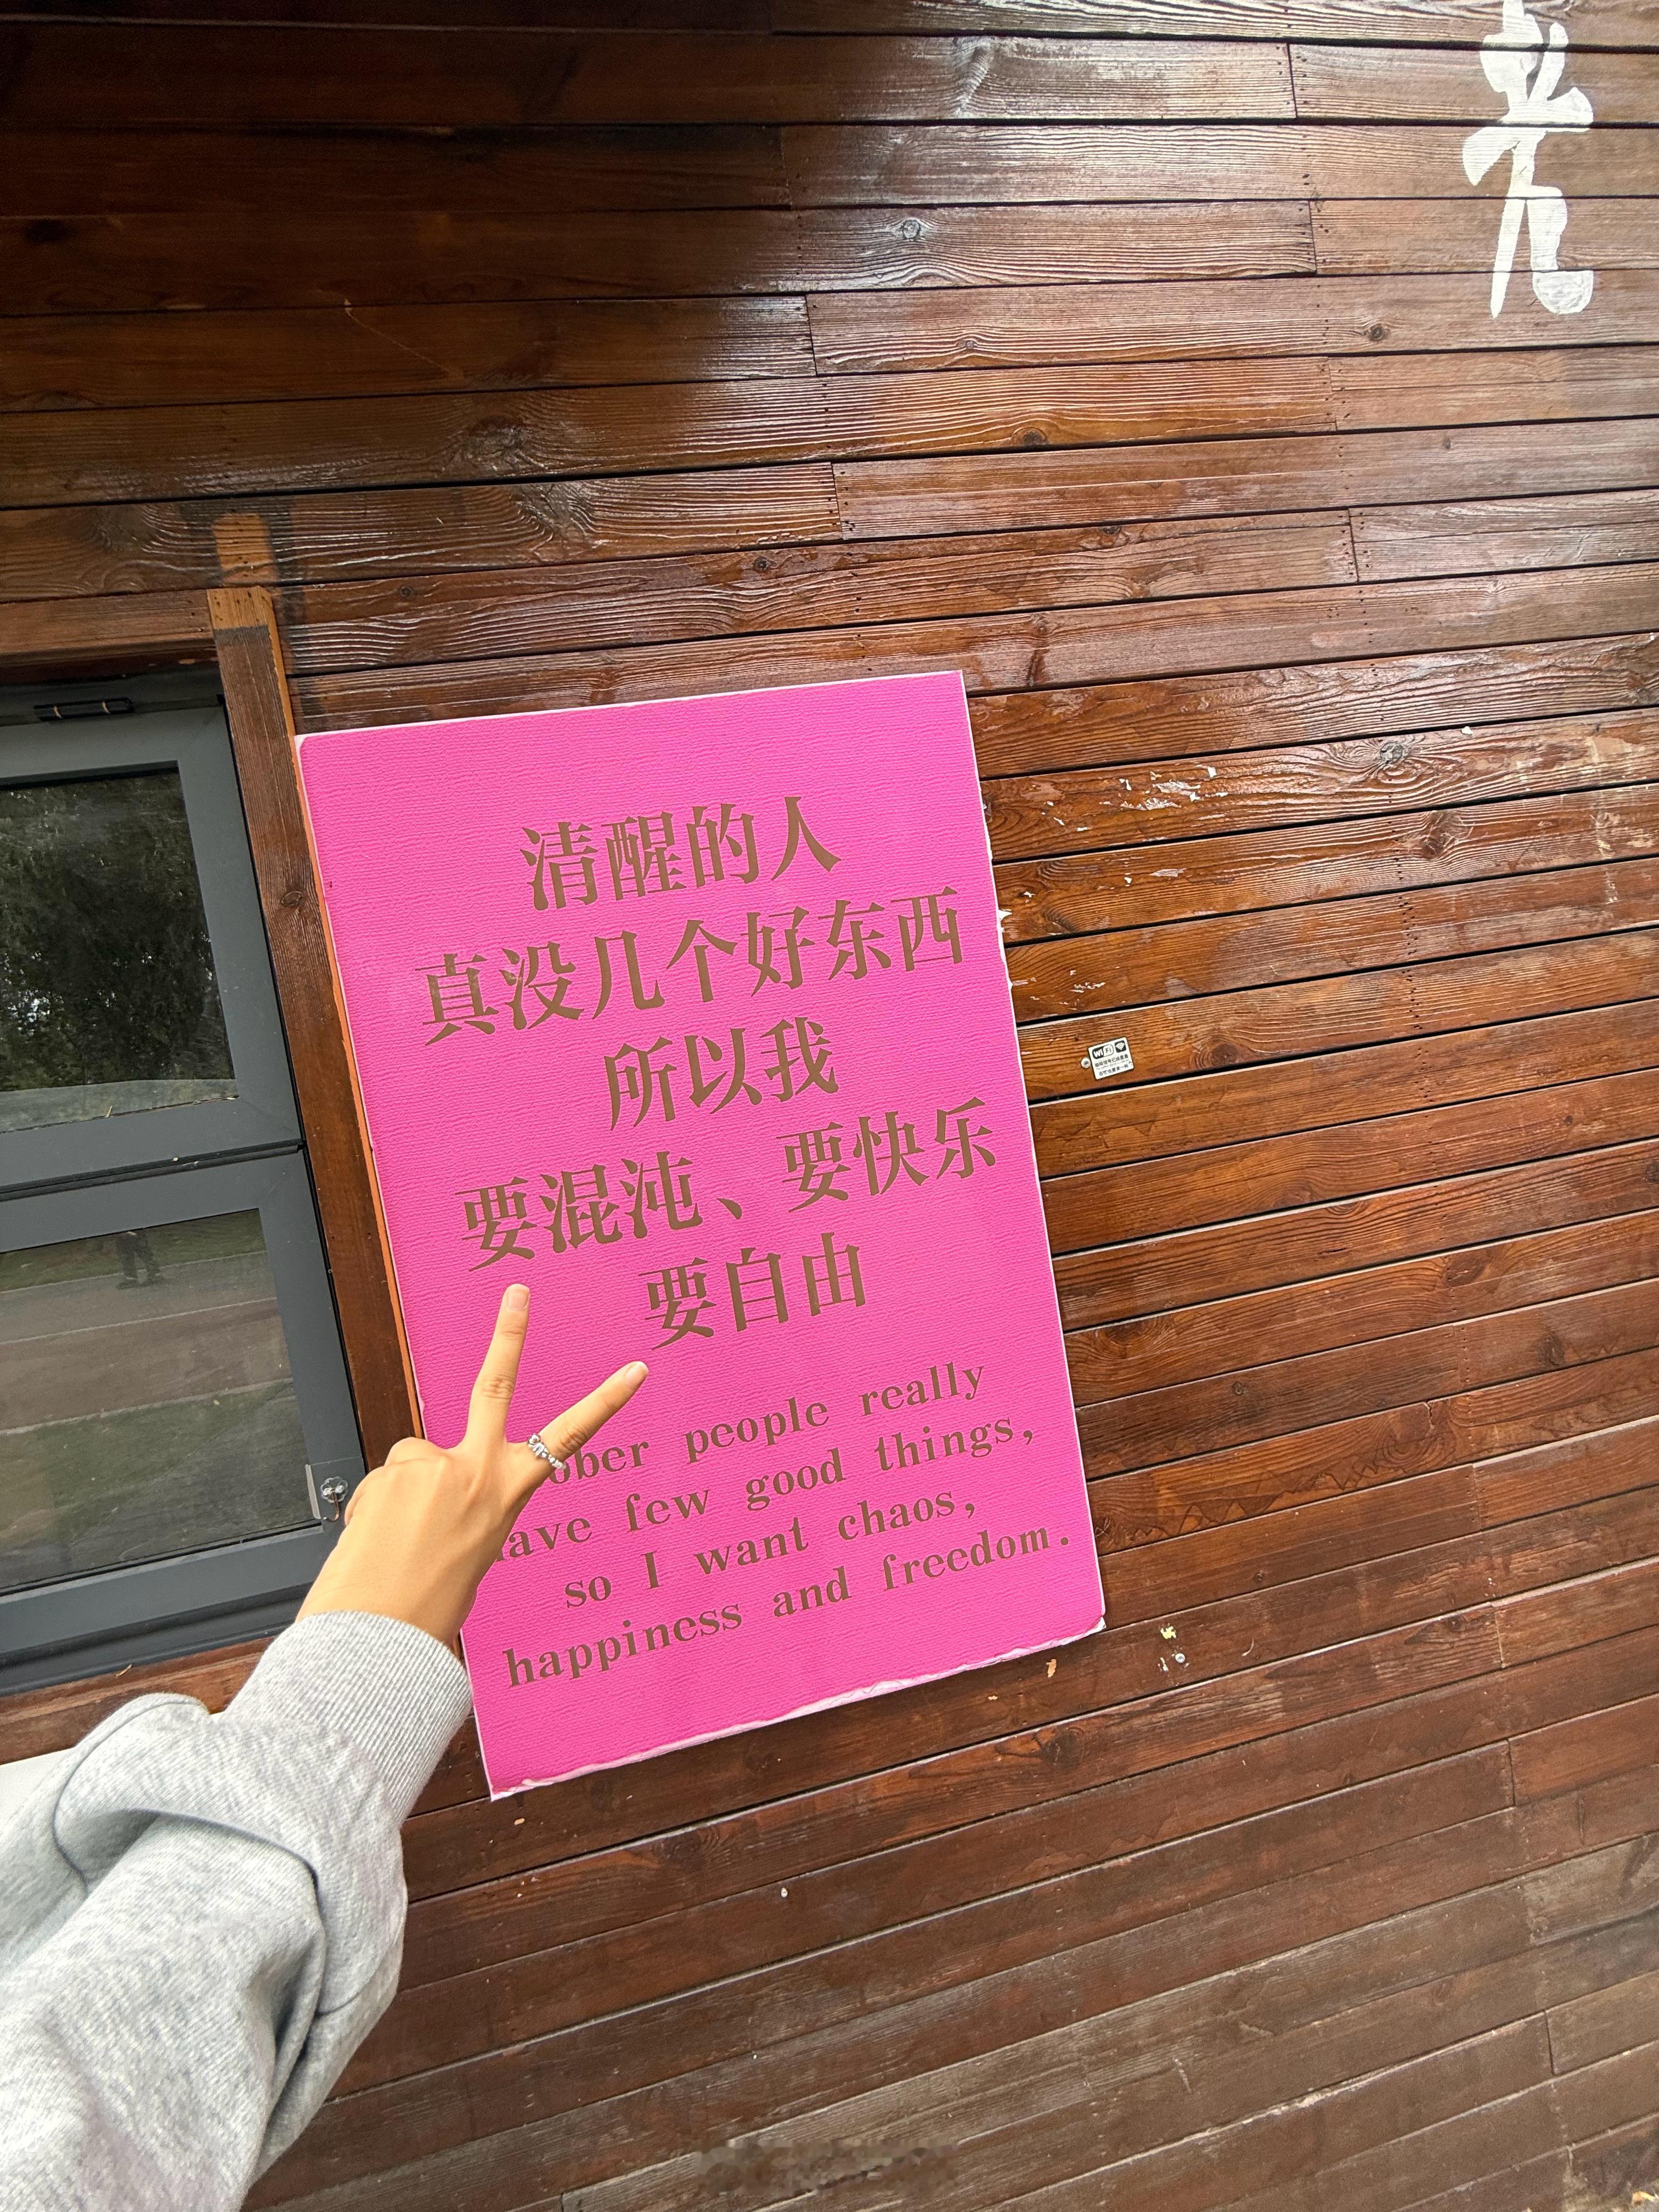 光
清醒的人
真没几个好东西
所以我
要混沌、要快乐
要自由
ober people really
ave few good things,
so I want chaos,
happiness and freedom.
WiFi